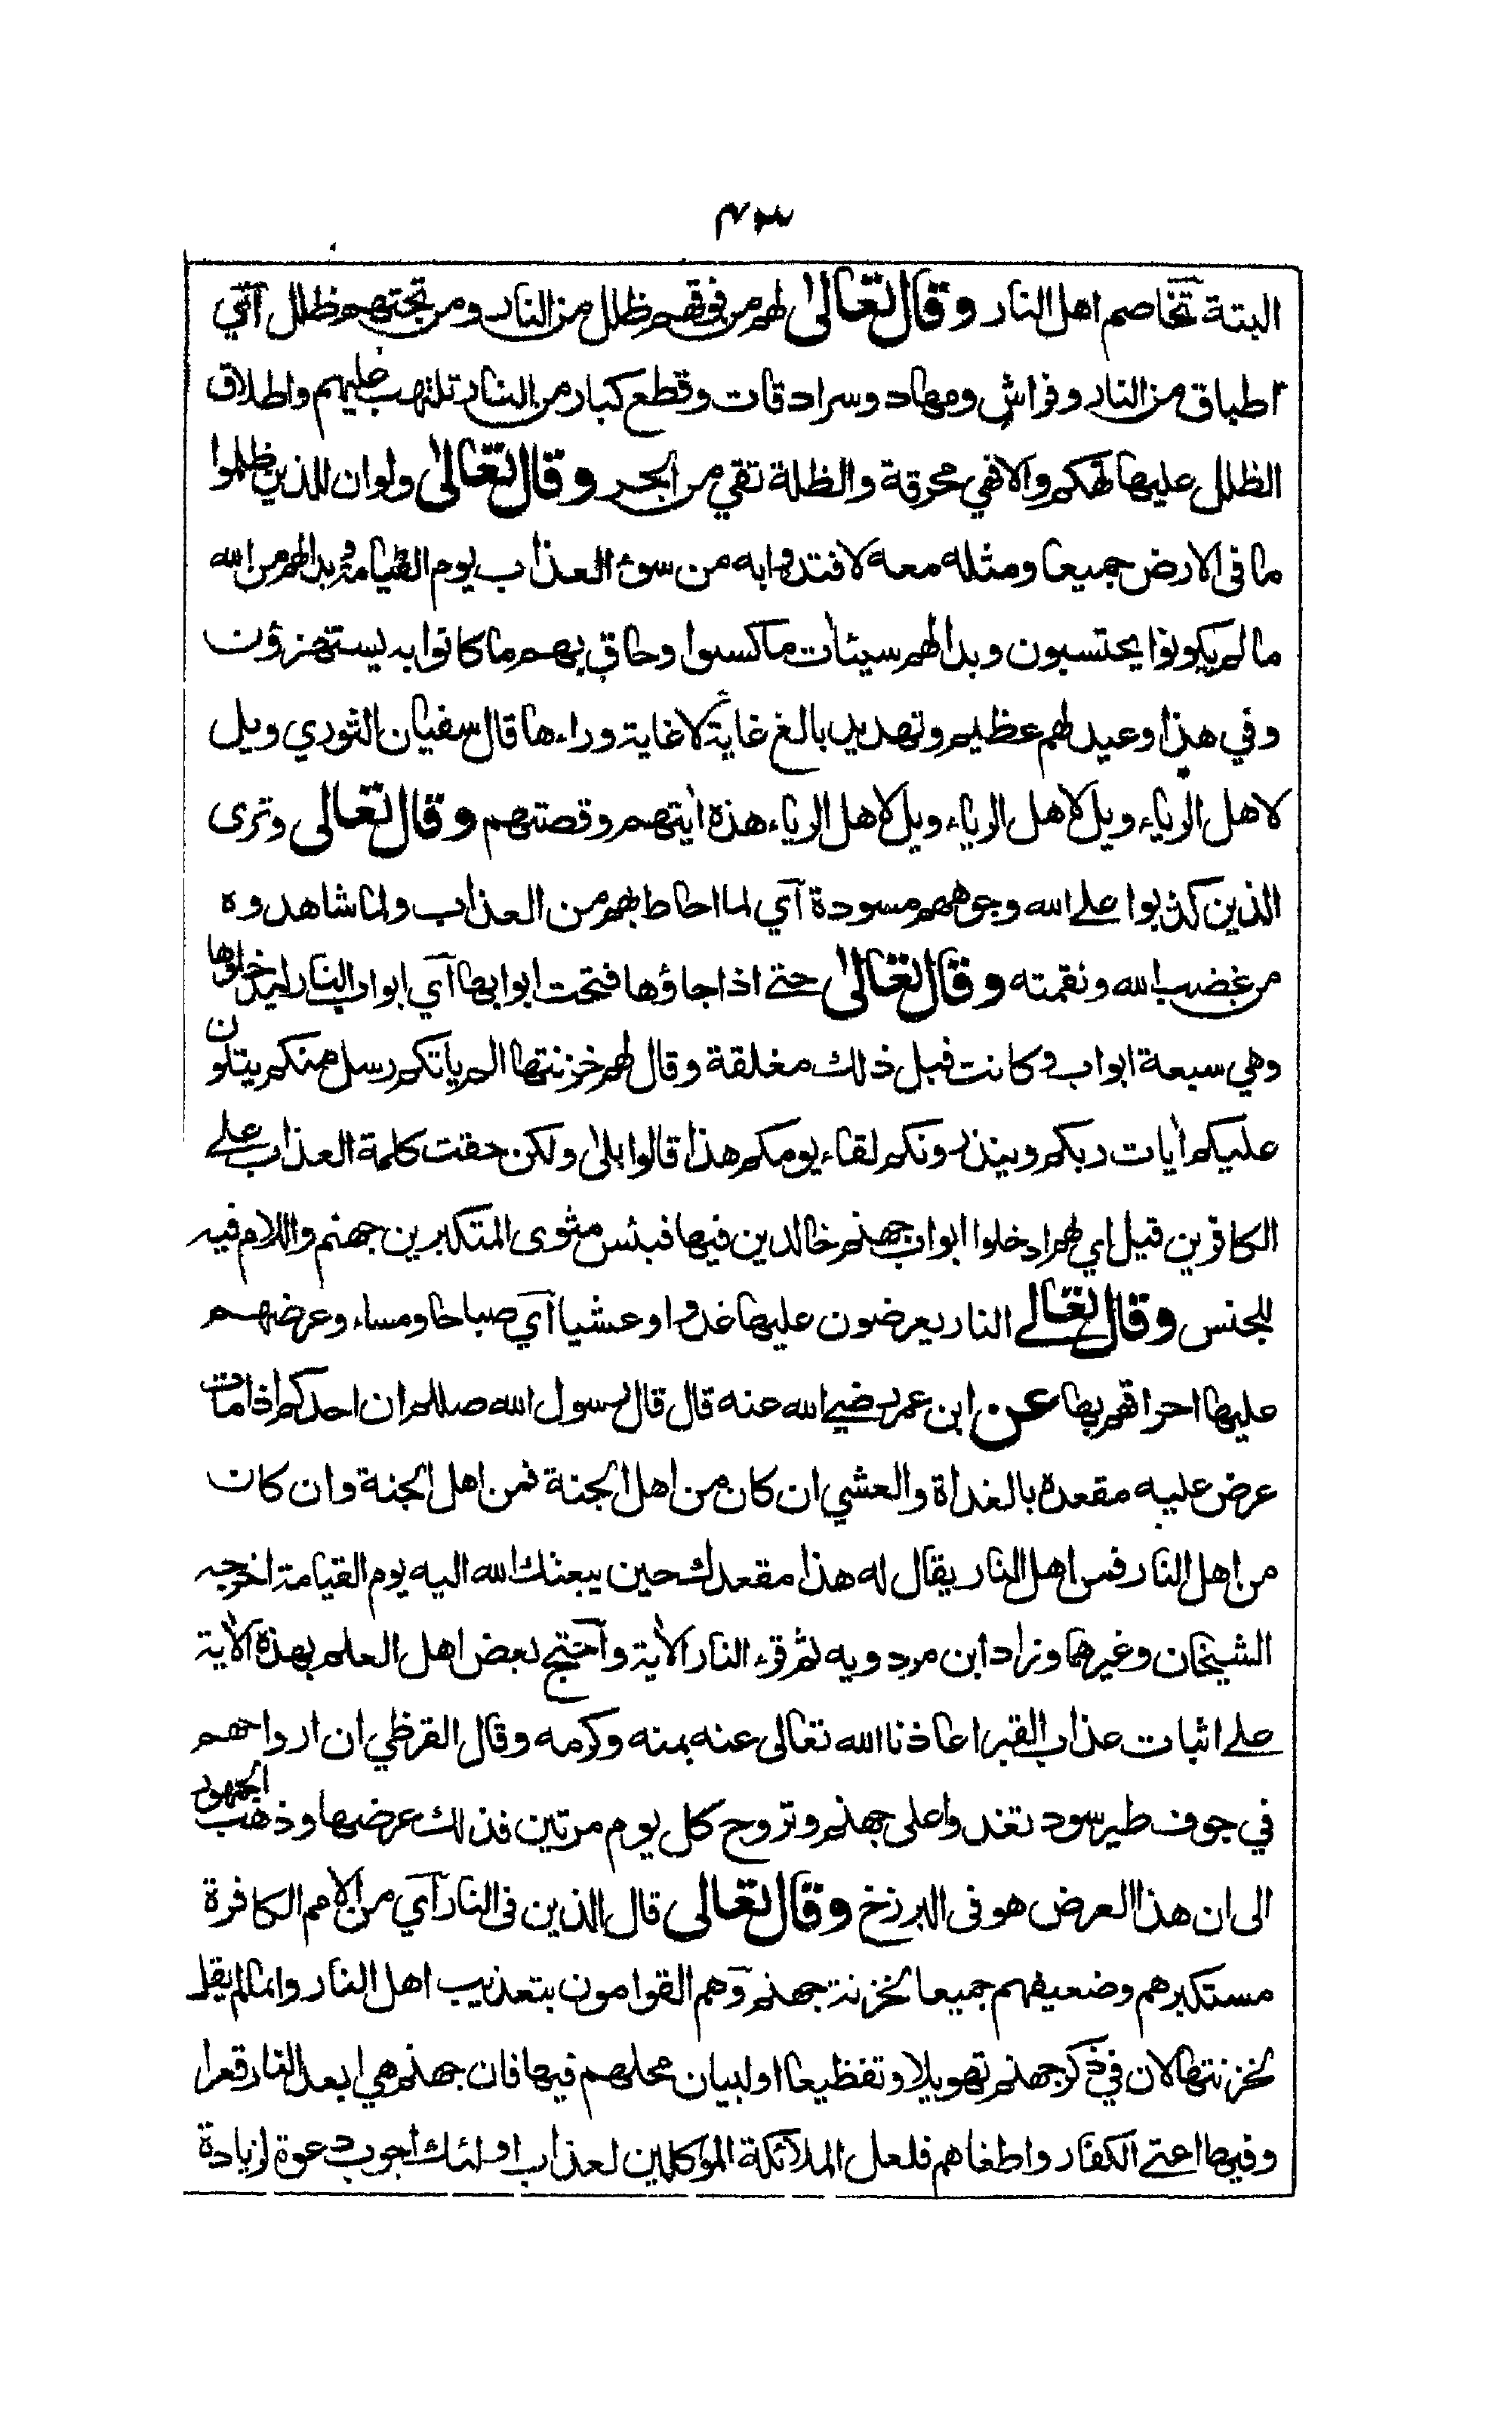 ٤٣
البتة تخاصم اهل النار وقال تعالىٰ لهم من فوقهم ظلل من النار ومن تحتهم ظلل آي
اطباق من النار وفراش ومهاد وسرادقات وقطع كبار من النار تلتهب عليهم واطلاق
الظلل عليها تهكم والا فهي محرقة والظلة تقي من الحر وقال تعالىٰ ولو ان للذين ظلموا
ما فى الارض جميعا ومثله معه لافتدوا به من سوء العذاب يوم القيامة وبدا لهم من الله
ما لم يكونوا يحتسبون وبدا لهم سيئات ما كسبوا وحاق بهم ما كانوا به يستهزؤن
وفي هذا وعيد لهم عظيم وتهديد بالغ غاية لا غاية وراءها قال سفيان الثوري ويل
لاهل الرياء ويل لاهل الرياء ويل لاهل الرياء هذه اٰيتهم وقصتهم وقال تعالى وترى
الذين كذبوا على الله وجوههم مسودة آي لما احاط بهم من العذاب ولما شاهدوه
من غضب الله ونقمته وقال تعالىٰ حتى اذا جاؤها فتحت ابوابها آي ابواب النار ليدخلوها
وهي سبعة ابواب وكانت قبل ذلك مغلقة وقال لهم خزنتها الم ياتكم رسل منكم يتلون
عليكم اٰيات ربكم وينذرونكم لقاء يومكم هذا قالوا بلىٰ ولكن حقت كلمة العذاب على
الكافرين قيل اي لهم ادخلوا ابواب جهنم خالدين فيها فبئس مثوى المتكبرين جهنم واللام فيه
للجنس وقال تعالے النار يعرضون عليها غدوا وعشيا آي صباحا ومساء وعرضهم
عليها احراقهم بها عن ابن عمر رضي الله عنه قال قال رسول الله صللم ان احدكم اذا مات
عرض عليه مقعده بالغداة والعشي ان كان من اهل الجنة فمن اهل الجنة وان كان
من اهل النار فمن اهل النار يقال له هذا مقعدك حين يبعثك الله اليه يوم القيامة اخرجه
الشيخان وغيرهما وزاد ابن مردويه ثم قرء النار الاٰية وآحتج بعض اهل العلم بهذه الاٰية
على اثبات عذاب القبر اعاذنا الله تعالى عنه بمنه وكرمه وقال القرظي ان ارواحهم
في جوف طير سود تغدوا على جهنم وتروح كل يوم مرتين فذلك عرضها وذهب الجمهور
الى ان هذا العرض هو فى البرزخ وقال تعالى قال الذين فى النار آي من الامم الكافرة
مستكبرهم وضعيفهم جميعا لخزنة جهنم وهم القوامون بتعذيب اهل النار وانما لم يقل
لخزنتها لان في ذكر جهنم تهويلا وتفظيعا او لبيان محلهم فيها فان جهنم هي ابعد النار قعرا
وفيها اعتى الكفار واطغاهم فلعل الملائكة الموكلين لعذاب اولئك اجوب دعوة لزيادة